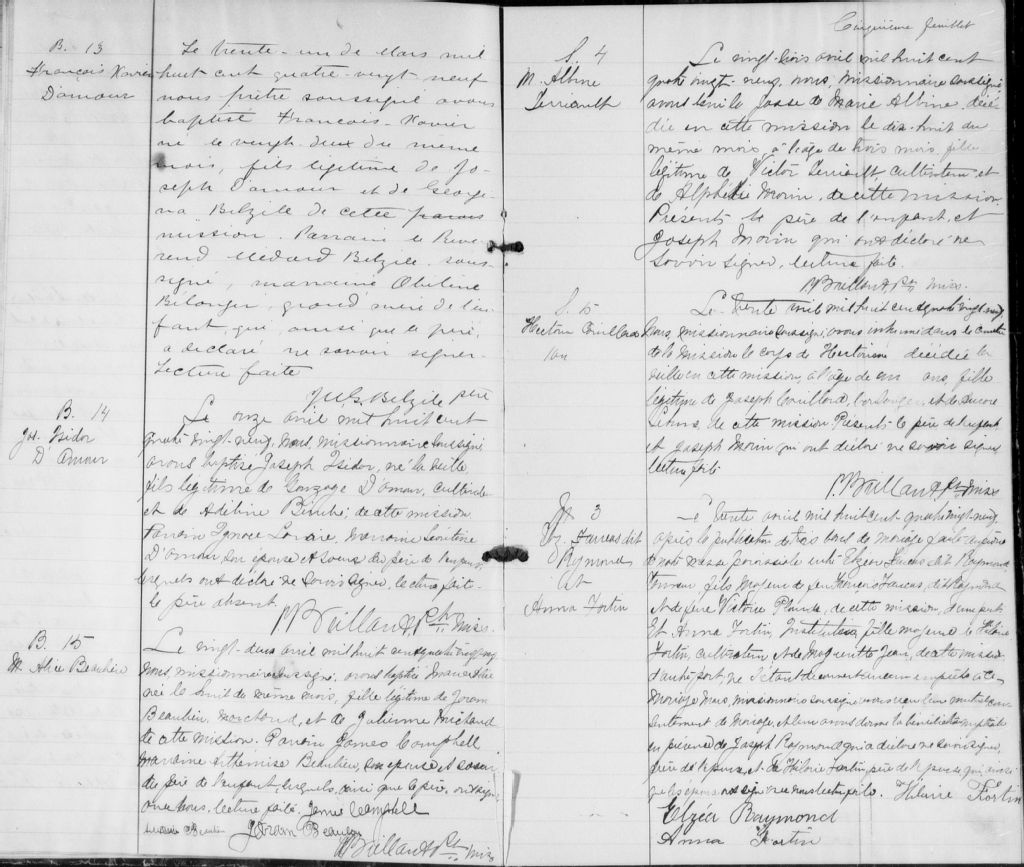 B. 13
François Xavier
Damour
Le trente-un de Mars mil
huit cent quatre-vingt neuf
nous prêtre soussigné avons
baptisé François-Xavier
né le vingt-deux du même
mois, fils légitime de Jo-
seph Damour et de Georgi-
na Belzile de cette parois
mission. Parrain le Reve-
rend Médard Belzile sous-
signé, marraine
Bélanger, grand'mère de l'en-
fant, qui, ainsi que le père,
a déclaré ne savoir signer.
Lecture faite
Belzile ptre
B. 14
Jos. Isidor
D'Amour
Le onze avril mil huit cent
quatre vingt-neuf, nous missionnaire soussigné
avons baptisé Joseph Isidor, né la veille
fils légitime de Gonzague D'amour, cultivateur
et de Adeline de cette mission
Parrain Ignace marraine
D'Amour son épouse et soeur du père de l'enfant
lesquels ont déclaré ne savoir signer, lecture faite
le père absent.
Ptre Miss.
B. 15
M. Alice Beaulieu
Le vingt-deux avril mil huit cent quatre vingt neuf
nous, missionnaire soussigné, avons baptisé Marie Alice
née le huit du même mois, fille légitime de
Beaulieu, marchand, et de Julienne Michaud
de cette mission. Parrain James Campbell
marraine Arthemise Beaulieu, son épouse et soeur
du père de l'enfant, lesquels, ainsi que le père, ont signé
avec nous. lecture faite. Campbell
Beaulieu
Ptre Miss
Cinquième feuillet
S. 4
M. Albine
Terriault
Le vingt-trois avril mil huit cent
quatre vingt-neuf, nous, missionnaire soussigné
avons béni la fosse de Marie Albine, décé-
dée en cette mission le dix-huit du
même mois, à l'âge de trois mois, fille
légitime de Victor Terriault, cultivateur et
de Morin, de cette mission
Présents le père de l'enfant, et
Joseph Morin qui ont déclaré ne
savoir signer, lecture faite.
Ptre Miss.
S. 5
Le trente avril mil huit cent quatre vingt neuf
nous, missionnaire soussigné, avons inhumé dans le cimetière
de la mission le corps de décédée la
veille en cette mission, à l'âge de un ans, fille
légitime de Joseph Couillard, boulanger, et de
de cette mission. Présents le père de l'enfant
et Joseph Morin qui ont déclaré ne savoir signer
lecture faite.
Ptre Miss
M 3
dit
Raymond
et
Anna Fortin
Le trente avril mil huit cent quatre vingt-neuf,
après la publication de trois bans de mariage faite au prône
de notre messe paroissiale entre Elzéar dit Raymond
fils majeur de feu dit Raymond
et de feue Victoire de cette mission, d'une part
Et Anna Fortin, Institutrice, fille majeure de Hilaire
Fortin, cultivateur et de Marguerite Jean, de cette mission
d'autre part, ne s'étant découvert aucun empêchement
mariage nous, missionnaire soussigné avons reçu leur mutuel con-
sentement de mariage, et leur avons donné la bénédiction nuptiale
en présence de Joseph Raymond qui a déclaré ne savoir signer,
frère de l'époux, et de Hilaire Fortin, père de l'épouse qui, ainsi
que les époux ont signé avec nous lecture faite. Hilaire Fortin
Elzéa Raymond
Anna Fortin